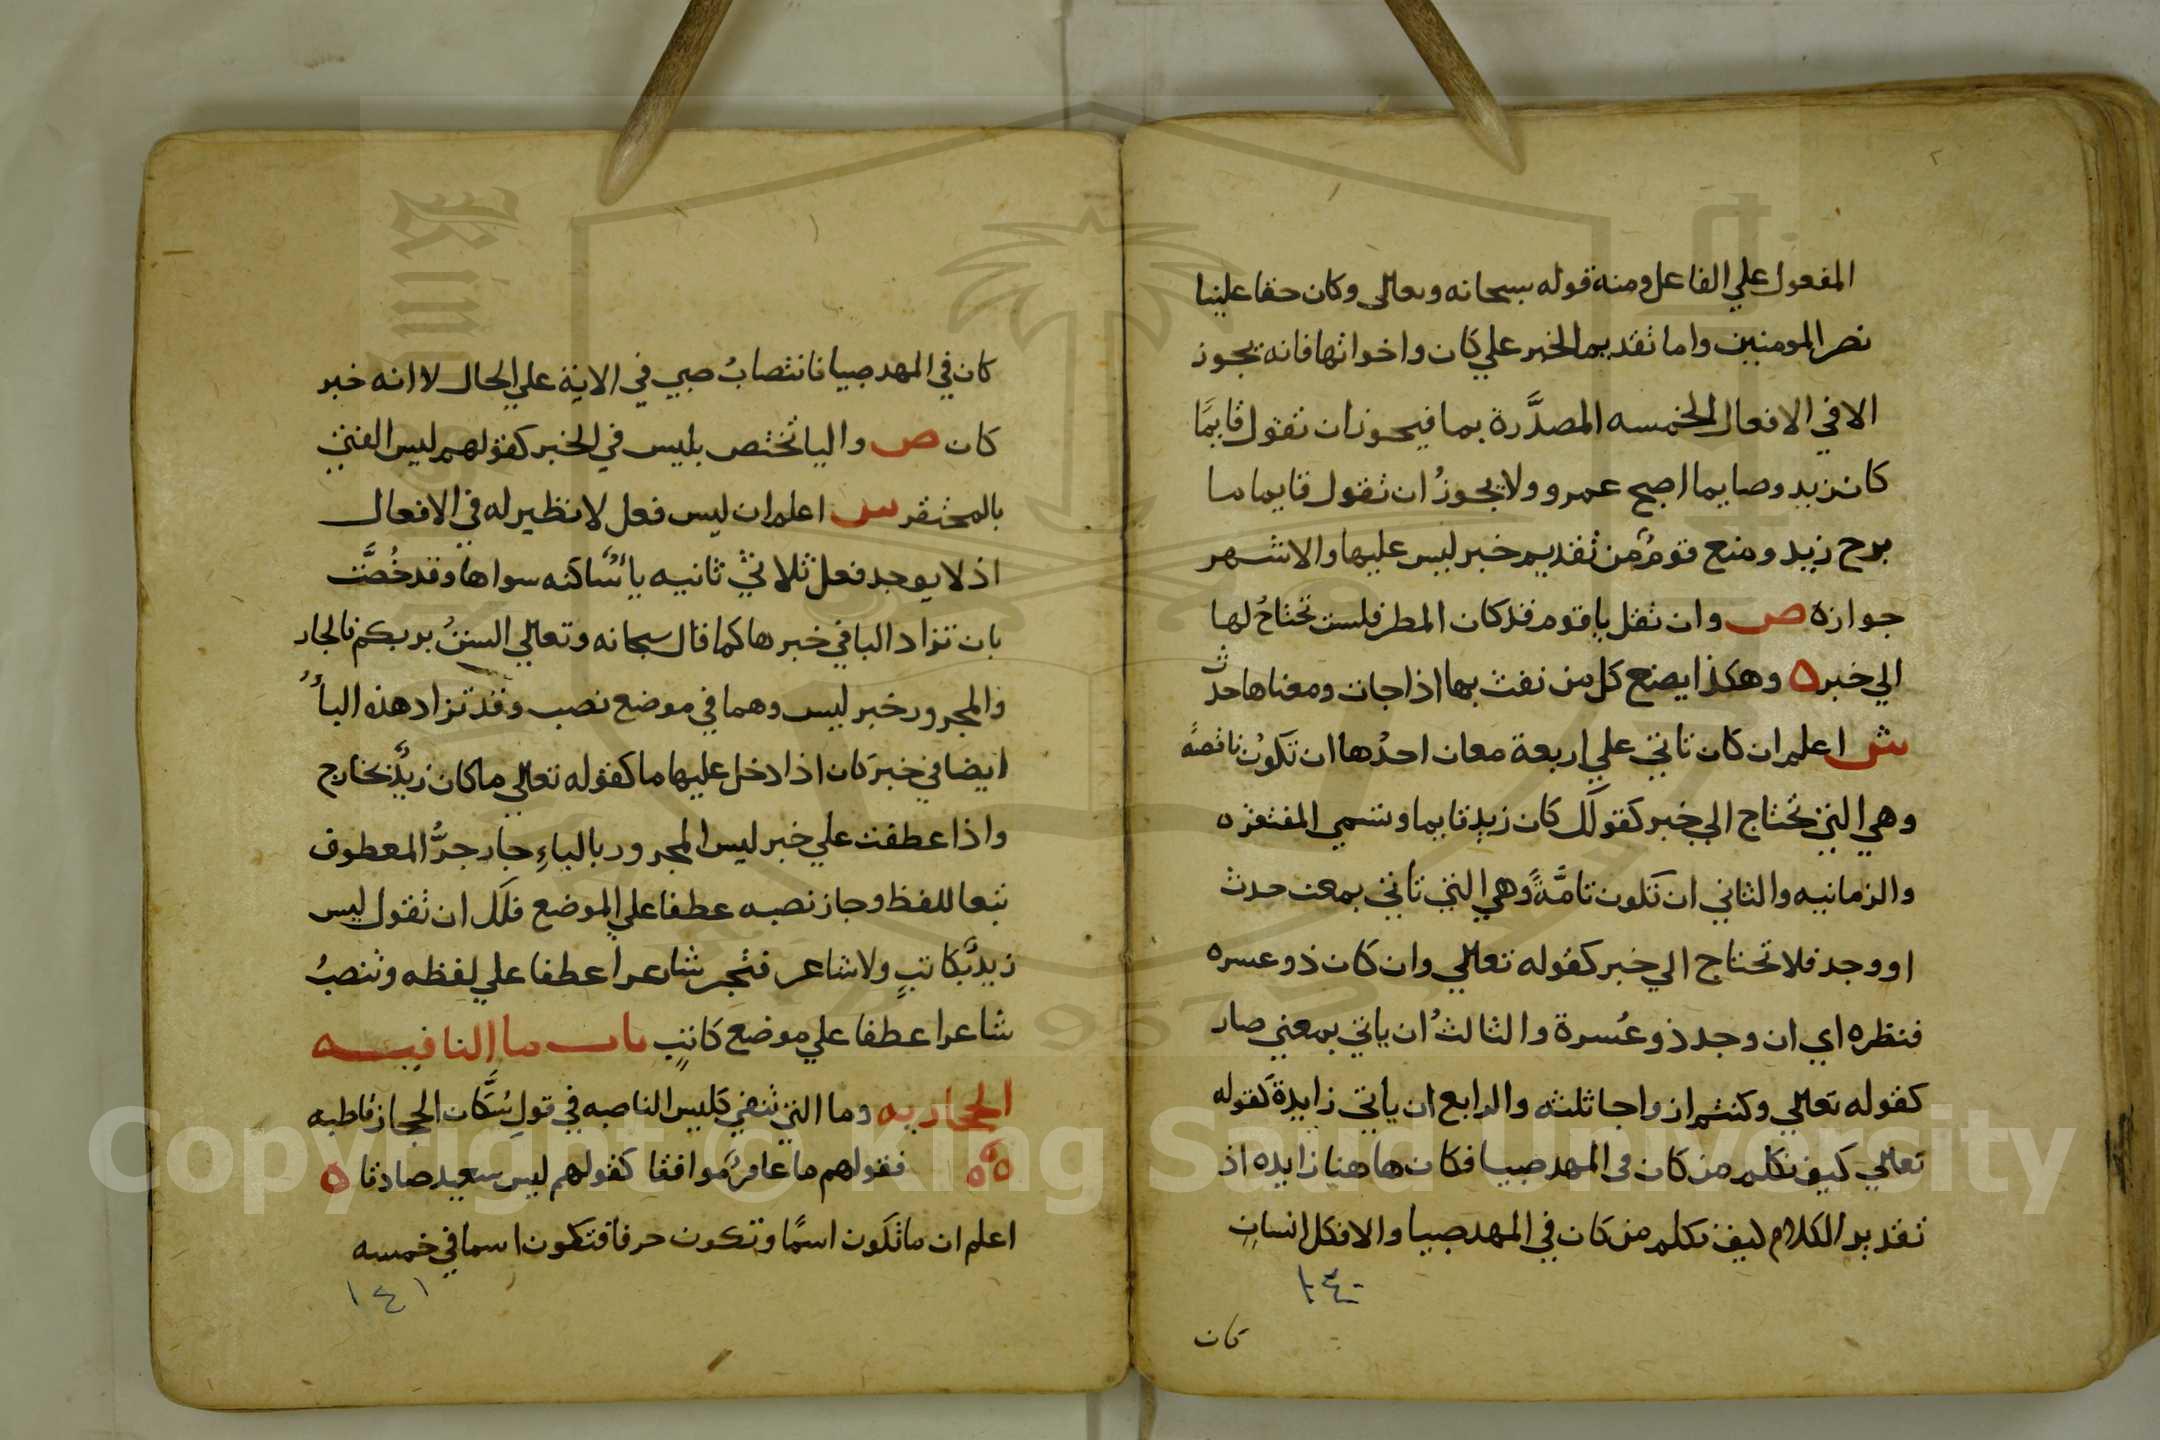 المفعول علي الفاعل ومنه قوله سبحانه وتعالى وكان حقا علينا
نصر المومنين واما تقديم الخبر علي كان واخواتها فانه يجوز
الا في الافعال الخمسه المصدَّرة بما فيجوز ان تقول قايمًا
كان زيد وصايما اصبح عمرو ولا يجوزُ ان تقول قايما ما
برح زيد ومنع قومٌ من تقديم خبر ليس عليها والاشهر
جوازه ص وان تقل يا قوم قد كان المطر فلست تحتاجُ لها
الي خبر ٥ وهكذا يصنع كل من نفث بها اذا جات ومعناها حدث
ش اعلم ان كان تاتي علي اربعة معان احدُها ان تكونُ ناقصةً
وهي التي تحتاج الي خبر كقولك كان زيد قايما وتسمي المفتقره
والزمانيه والثاني ان تكون تامَّةً وهي التي تاتي بمعنى حدث
او وجد فلا تحتاج الي خبر كقوله تعالي وان كان ذو عسره
فنظره اي ان وجد ذو عُسرة والثالثُ ان ياتي بمعني صار
كقوله تعالي وكنتم ازواجا ثلثه والرابع ان ياتي زايدة كقوله
تعالي كيف نكلم من كان في المهد صبيا فكان هاهنا زايده اذ
تقدير الكلام كيف نكلم من كان في المهد صبيا والا فكل انسان
١٤٠
كان
كان في المهد صبيا فانتصابُ صبي في الاية علي الحال لا انه خبر
كان ص والبا تختص بليس في الخبر كقولهم ليس الفتي
بالمحتقر س اعلم ان ليس فعل لا نظير له في الافعال
اذ لا يوجد فعل ثلاثي ثانيه ياءٌ ساكنه سواها وقد خُصَّت
بان تزاد البا في خبرها كما قال سبحانه وتعالي الستُ بربكم فالجار
والمجرور خبر ليس وهما في موضع نصب وقد تزاد هذه الباءُ
ايضا في خبر كان اذا دخل عليها ما كقوله تعالي ما كان زيدٌ بخارج
واذا عطفت علي خبر ليس المجرور بالباءِ جاز جرُّ المعطوف
تبعا للفظ وجاز نصبه عطفا علي الموضع فلك ان تقول ليس
زيدٌ بكاتبٍ ولا شاعر فتجر شاعرا عطفا علي لفظه وتنصبُ
شاعرا عطفا علي موضع كاتبٍ باب ما النافيه
الحجازيه وما التي تنفي كليس الناصبه في قولِ سُكَّان الحجاز قاطبه
٥٥٥ فقولهم ما عامرٌ موافقا كقولهم ليس سعيد صادقا ٥
اعلم ان ما تكون اسمًا وتكون حرفا فتكون اسما في خمسه
١٤١
Copyright © King Saud University
1957